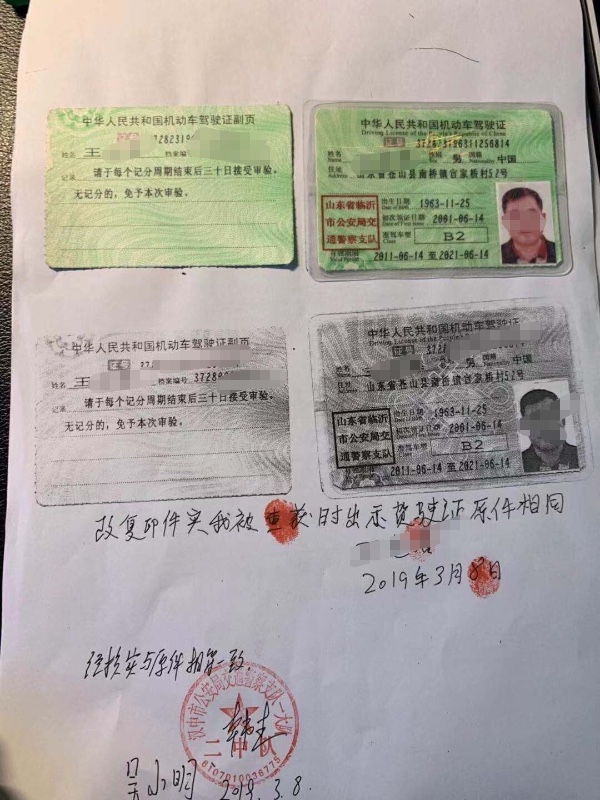 中华人民共和国机动车驾驶证副页
证号 37282319
姓名 王 档案编号
记录 请于每个记分周期结束后三十日接受审验。
无记分的，免予本次审验。
中华人民共和国机动车驾驶证
Driving License of the People's Republic of China
证号 372823196311256814
姓名 性别 男 国籍 中国
住址 山东省苍山县南桥镇官家桥村52号
山东省临沂
市公安局交
通警察支队
出生日期 1963-11-25
初次领证日期 2001-06-14
准驾车型 B2
有效期限 2011-06-14 至 2021-06-14
中华人民共和国机动车驾驶证副页
证号 37
姓名 王 档案编号 37280
记录 请于每个记分周期结束后三十日接受审验。
无记分的，免予本次审验。
中华人民共和国机动车驾驶证
Driving License of the People's
证号 3721
男 国籍 中国
住址 山东省苍山县南桥镇官家桥村52号
山东省临沂
市公安局交
通警察支队
出生日期 1963-11-25
初次领证日期 2001-06-14
准驾车型 B2
2011-06-14 至 2021-06-14
改复印件实我被查获时出示驾驶证原件相同
2019年3月8日
经核实与原件相符一致.
汉中市公安局交通警察支队一大队
二中队
6107010036775
吴小明 2019.3.8.